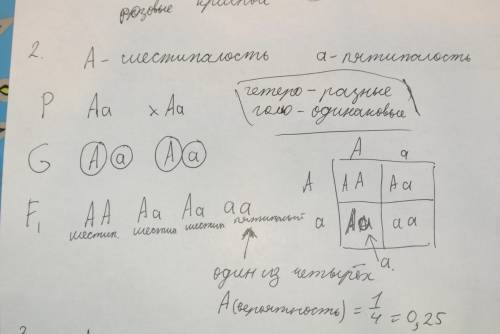 розовые красной
2. A - шестипалость a - пятипалость
P Aa x Aa
гетеро - разные
гомо - одинаковые
G A a A a
F1 AA Aa Aa aa
шестип. шестип шестип пятипалый
A a
A AA Aa
a Aa aa
a.
один из четырёх
A(вероятность) = 1/4 = 0,25